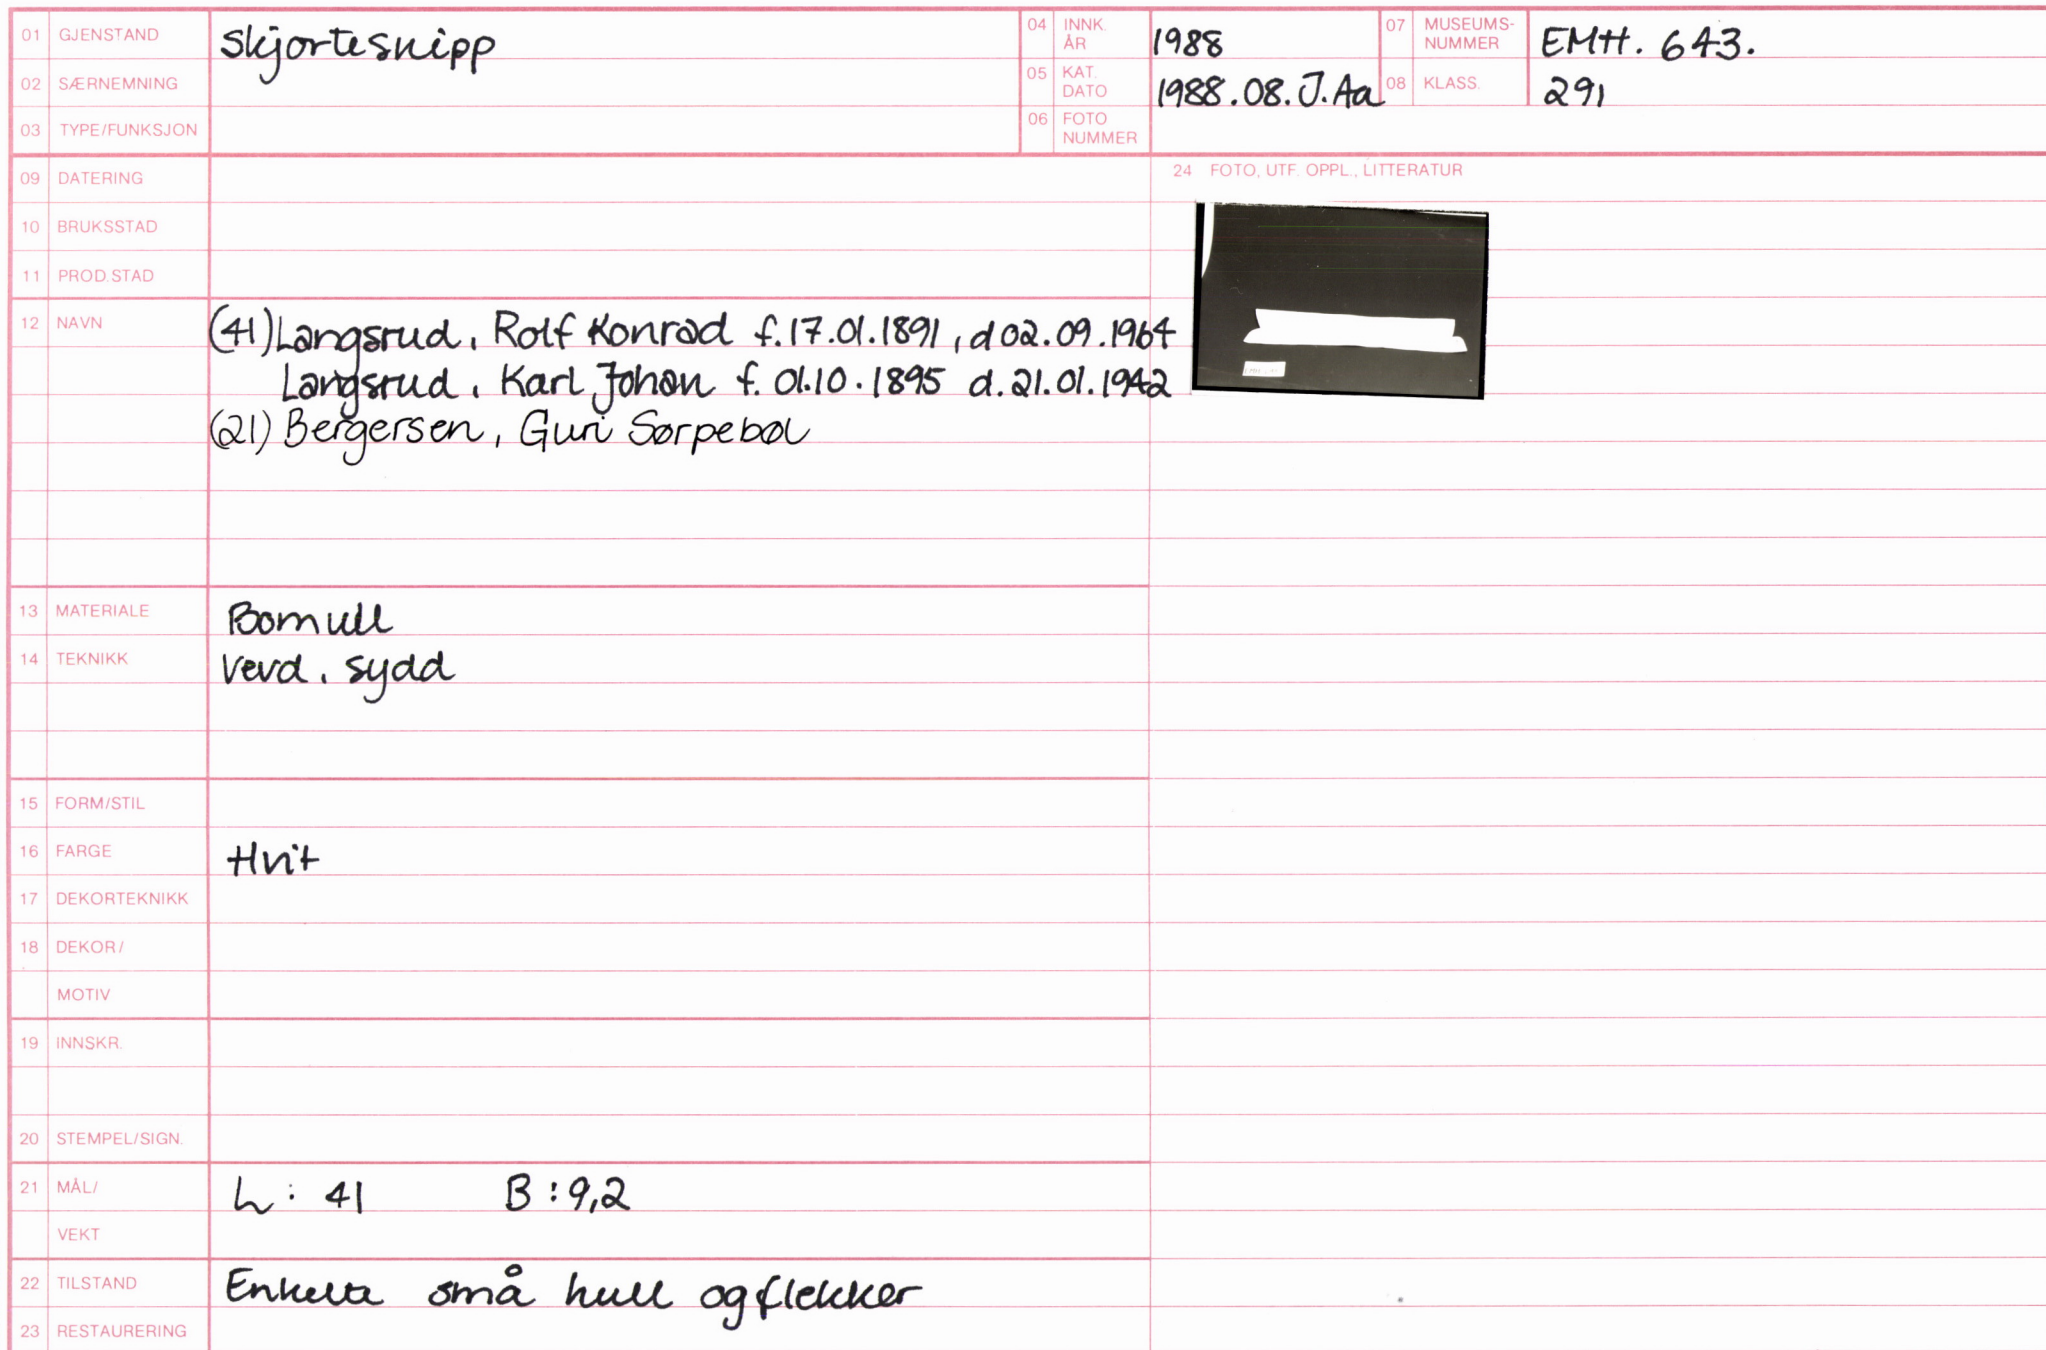 01 GJENSTAND Skjortesnipp
02 SÆRNEMNING
03 TYPE/FUNKSJON
04 INNK. ÅR 1988
05 KAT. DATO 1988.08.J.Aa
06 FOTO NUMMER
07 MUSEUMS-NUMMER EMH. 643.
08 KLASS. 291
09 DATERING
10 BRUKSSTAD
11 PROD.STAD
12 NAVN (41) Langsrud, Rolf Konrad f.17.01.1891, d 02.09.1964
Langsrud, Karl Johan f. 01.10.1895 d.21.01.1942
(21) Bergersen, Guri Sørpebøl
13 MATERIALE Bomull
14 TEKNIKK Vevd, sydd
15 FORM/STIL
16 FARGE Hvit
17 DEKORTEKNIKK
18 DEKOR/
MOTIV
19 INNSKR.
20 STEMPEL/SIGN.
21 MÅL/ L: 41 B: 9,2
VEKT
22 TILSTAND Enkelte små hull og flekker
23 RESTAURERING
24 FOTO, UTF. OPPL., LITTERATUR